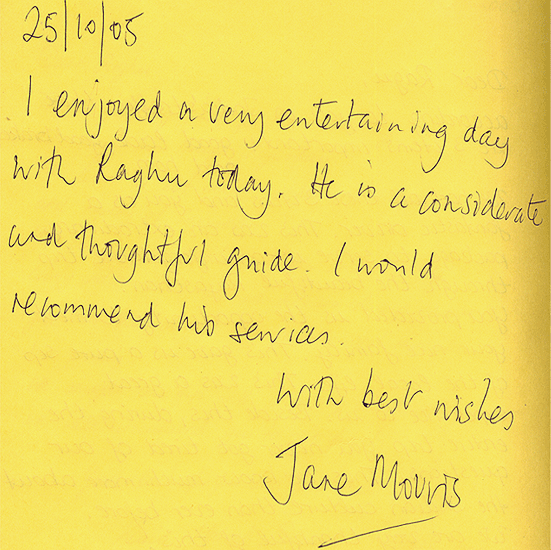 25/10/05
I enjoyed a very entertaining day
with Raghu today. He is a considerate
and thoughtful guide. I would
recommend his services.
With best wishes
Jane Morris